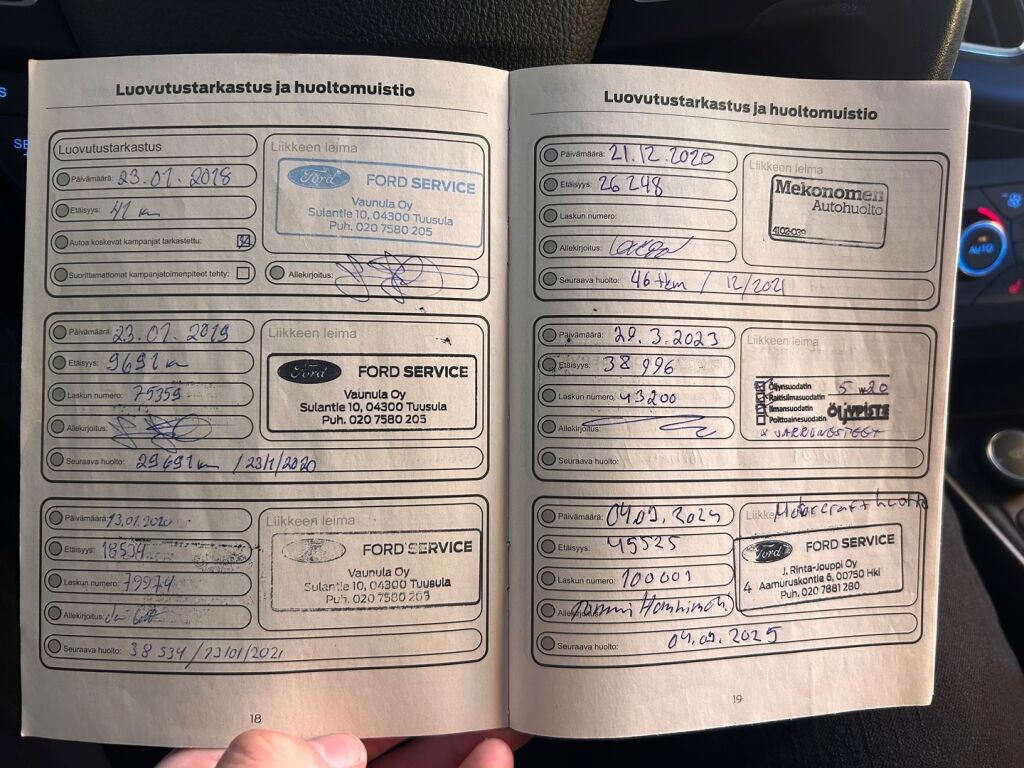 Luovutustarkastus ja huoltomuistio
Luovutustarkastus
Päivämäärä: 23.01.2018
Etäisyys: 41 km
Autoa koskevat kampanjat tarkastettu:
Suorittamattomat kampanjatoimenpiteet tehty:
Liikkeen leima
Ford FORD SERVICE
Vaunula Oy
Sulantie 10, 04300 Tuusula
Puh. 020 7580 205
Allekirjoitus:
Päivämäärä: 23.01.2019
Etäisyys: 9691 km
Laskun numero: 75359
Allekirjoitus:
Liikkeen leima
Ford FORD SERVICE
Vaunula Oy
Sulantie 10, 04300 Tuusula
Puh. 020 7580 205
Seuraava huolto: 29691 km / 23/1/2020
Päivämäärä: 13.01.2020
Etäisyys: 18534
Laskun numero: 79974
Allekirjoitus:
Liikkeen leima
FORD SERVICE
Vaunula Oy
Sulantie 10, 04300 Tuusula
Puh. 020 7580 205
Seuraava huolto: 38 534 / 23/01/2021
18
Luovutustarkastus ja huoltomuistio
Päivämäärä: 21.12.2020
Etäisyys: 26 248
Laskun numero:
Allekirjoitus:
Liikkeen leima
Mekonomen
Autohuolto
4102-039
Seuraava huolto: 46 tkm / 12/2021
Päivämäärä: 29.3.2023
Etäisyys: 38 996
Laskun numero: 43200
Allekirjoitus:
Liikkeen leima
Öljynsuodatin 5 w 20
Raitisilmasuodatin
Ilmansuodatin ÖLJYPISTE
Polttoainesuodatin
x JARRUNESTEET
Seuraava huolto:
Päivämäärä: 04.09.2024
Etäisyys: 45525
Laskun numero: 100001
Allekirjoitus:
Motorcraft huolto
Ford FORD SERVICE
J. Rinta-Jouppi Oy
4 Aamuruskontie 6, 00750 Hki
Puh. 020 7881 280
Seuraava huolto: 04.09.2025
19
AUTO